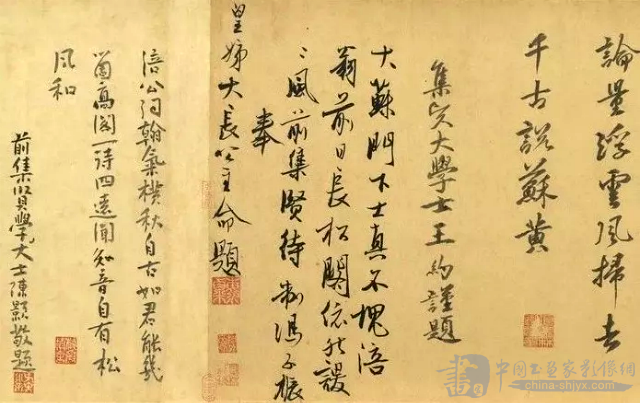 論量浮雲風掃去
千古說蘇黃
集賢大學士王約謹題
大蘇門下士真不愧涪
翁前日長松閣依然謖
〻風前集賢待制馮子振
奉
皇姊大長公主命題
涪公詞翰氣橫秋自古如君能幾
箇高閣一詩四遠聞知音自有松
風和
前集賢學大士陳顥敬題
china-shjyx.com